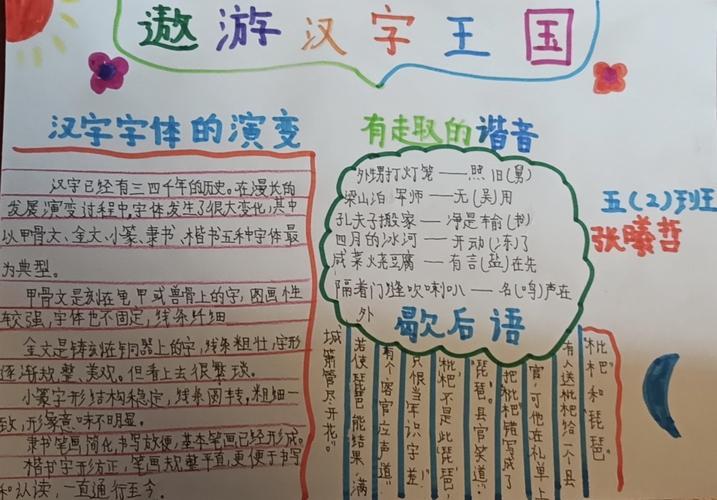 遨游汉字王国
汉字字体的演变
汉字已经有三四千年的历史。在漫长的
发展演变过程中,字体发生了很大变化,其中
以甲骨文、金文、小篆、隶书、楷书五种字体最
为典型。
甲骨文是刻在龟甲或兽骨上的字,图画性
较强,字体也不固定,线条纤细
金文是铸刻在铜器上的字,线条粗壮,字形
逐渐规整、美观。但看上去很繁琐。
小篆字形结构稳定,线条圆转,粗细一
致,形象意味不明显。
隶书笔画简化,书写放便,基本笔画已经形成。
楷书字形方正,笔画规整平直,更便于书写
和认读,一直通行至今。
有走取的谐音
外甥打灯笼——照旧(舅)
梁山泊军师——无(吴)用
孔夫子搬家——净是输(书)
四月的冰河——开动(冻)了
咸菜烧豆腐——有言(盐)在先
隔着门缝吹喇叭——名(鸣)声在
外
歇后语
五(2)班
张曦哲
"枇杷"和"琵琶"
有人送枇杷给一个县
官,可他在礼单上
把"枇杷"错写成了
"琵琶"。县官笑道:"
"枇杷"不是此"琵琶",
只恨当年识字差!"
有个客官立声道:
"若使琵琶能结果,满
城箫管尽开花。"